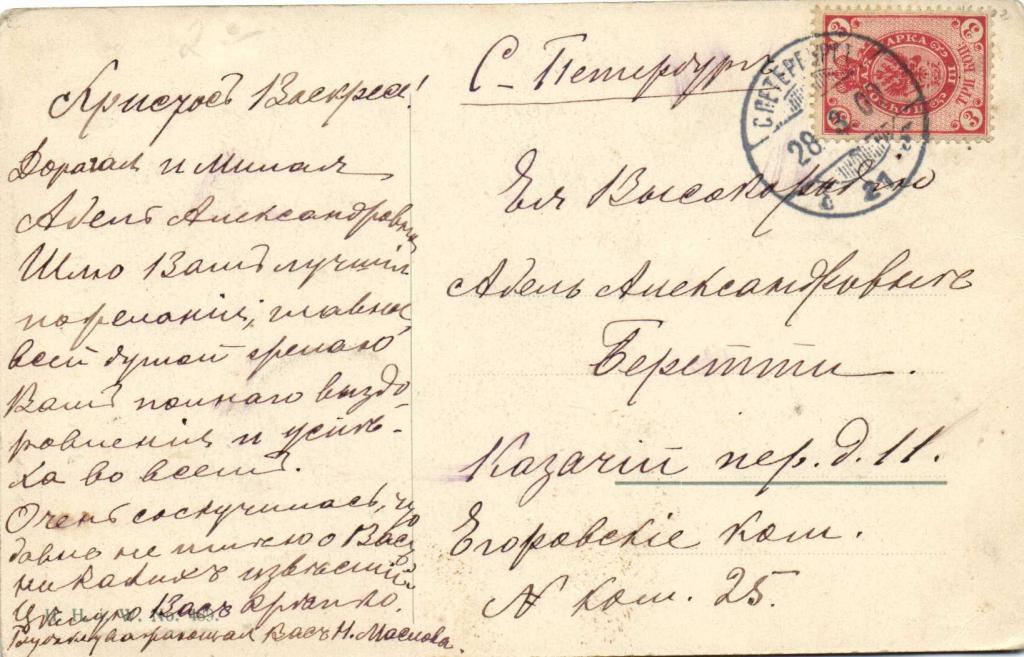 Христосъ Васкресе!
Дорагая и Милая
Адель Александровна
Шлю Вамъ лучшія
пожеланія, главное
всей душой желаю
Вамъ полнаго выздо-
ровленія и успѣ-
ха во всемъ.
Очень соскучилась, что
давно не имѣю о Васъ
никакихъ извѣстій
Цѣлую Васъ крѣпко.
Глубокоуважающая Васъ Н. Маслова.
С-Петербургъ
Ея Высокородію
Адель Александровнѣ
Беретти.
Казачій пер. д. 11.
Егоровскіе ком.
N ком. 25.
С.ПЕТЕРБУРГЪ
28 3 07
21
МАРКА
3
3
3